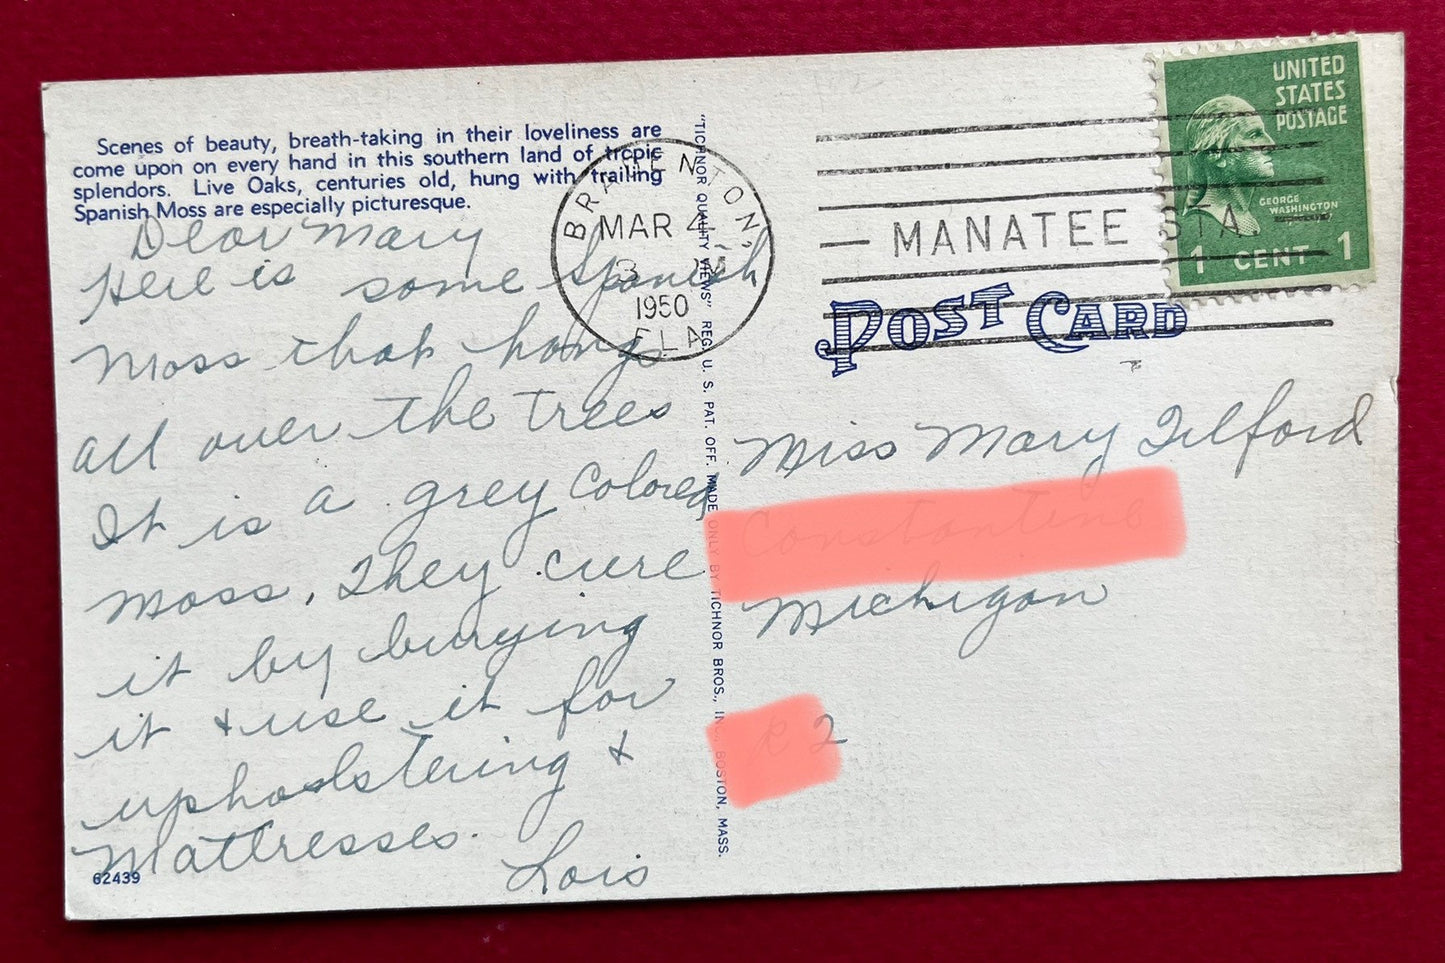 Scenes of beauty, breath-taking in their loveliness are
come upon on every hand in this southern land of tropic
splendors. Live Oaks, centuries old, hung with trailing
Spanish Moss are especially picturesque.
Dear Mary
Here is some Spanish
Moss that hangs
all over the trees
It is a grey colored
moss, They cure
it by burying
it & use it for
upholstering &
Mattresses.
Lois
62439
"TICHNOR QUALITY VIEWS" REG. U. S. PAT. OFF. MADE ONLY BY TICHNOR BROS., INC., BOSTON, MASS.
BRADENTON,
MAR 4
3
1950
FLA
MANATEE STA.
UNITED
STATES
POSTAGE
GEORGE
WASHINGTON
1 CENT 1
POST CARD
Miss Mary Telford
Michigan
2